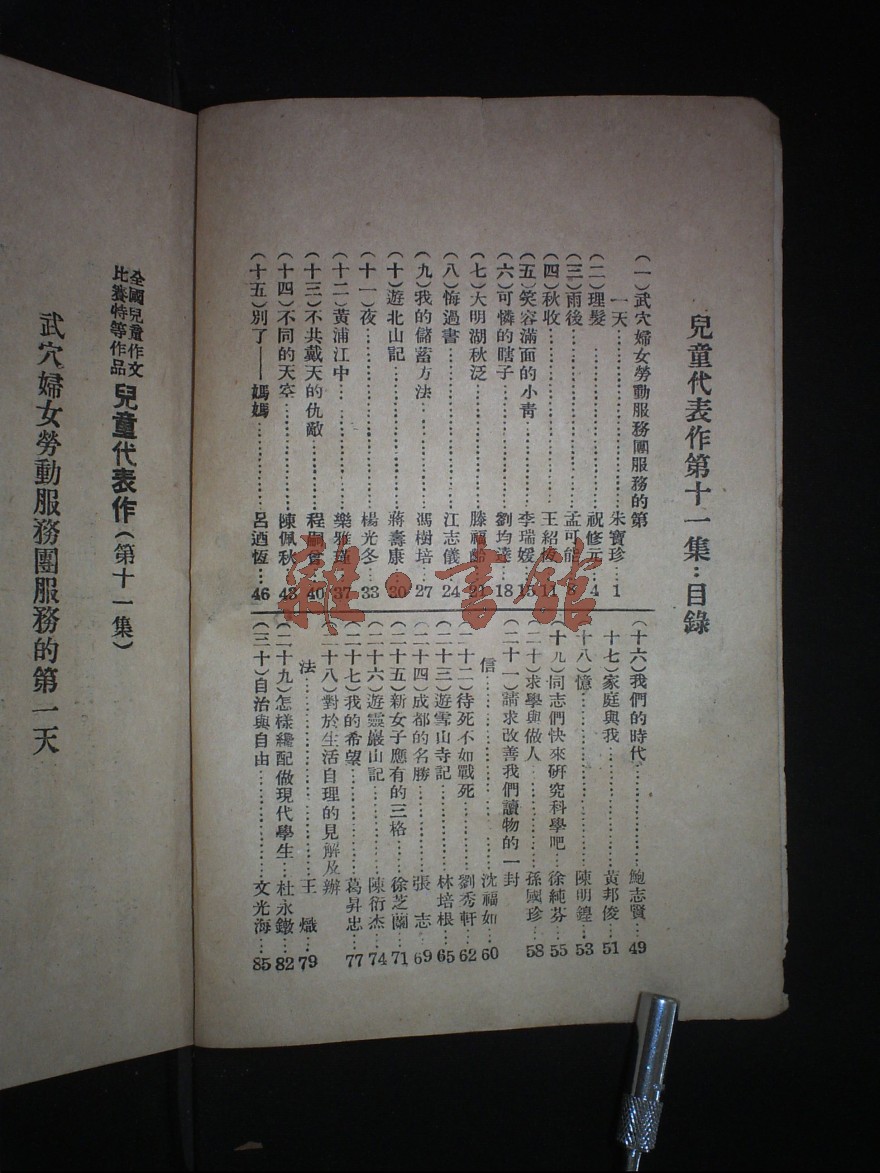 兒童代表作第十一集：目錄
（一）武穴婦女勞動服務團服務的第
一天……朱寶珍…1
（二）理髮……祝修元…4
（三）雨後……孟可能…8
（四）秋收……王紹恆…11
（五）笑容滿面的小青……李瑞媛…15
（六）可憐的瞎子……劉均達…18
（七）大明湖秋泛……滕福齡…21
（八）悔過書……江志儀…24
（九）我的儲蓄方法……馮樹培…27
（十）遊北山記……蔣壽康…30
（十一）夜……楊光冬…33
（十二）黃浦江中……樂雅瑾…37
（十三）不共戴天的仇敵……程嗣會…40
（十四）不同的天空……陳佩秋…43
（十五）別了——媽媽……呂迺恆…46
（十六）我們的時代……鮑志賢…49
十七）家庭與我……黃邦俊…51
十八）憶……陳明鍠…53
（十九）同志們快來研究科學吧…徐純芬…55
（二十）求學與做人……孫國珍…58
（二十一）請求改善我們讀物的一封
信……沈福如…60
二十二）待死不如戰死……劉秀軒…62
（二十三）遊雪山寺記……林培根…65
（二十四）成都的名勝……張 志…69
（二十五）新女子應有的三格…徐芝蘭…71
（二十六）遊靈巖山記……陳衍杰…74
（二十七）我的希望……葛昇忠…77
（二十八）對於生活自理的見解及辦
法……王 熾…79
（二十九）怎樣纔配做現代學生…杜永鐓…82
（三十）自治與自由……文光海…85
雜·書館
全國兒童作文
比賽特等作品
兒童代表作（第十一集）
武穴婦女勞動服務團服務的第一天